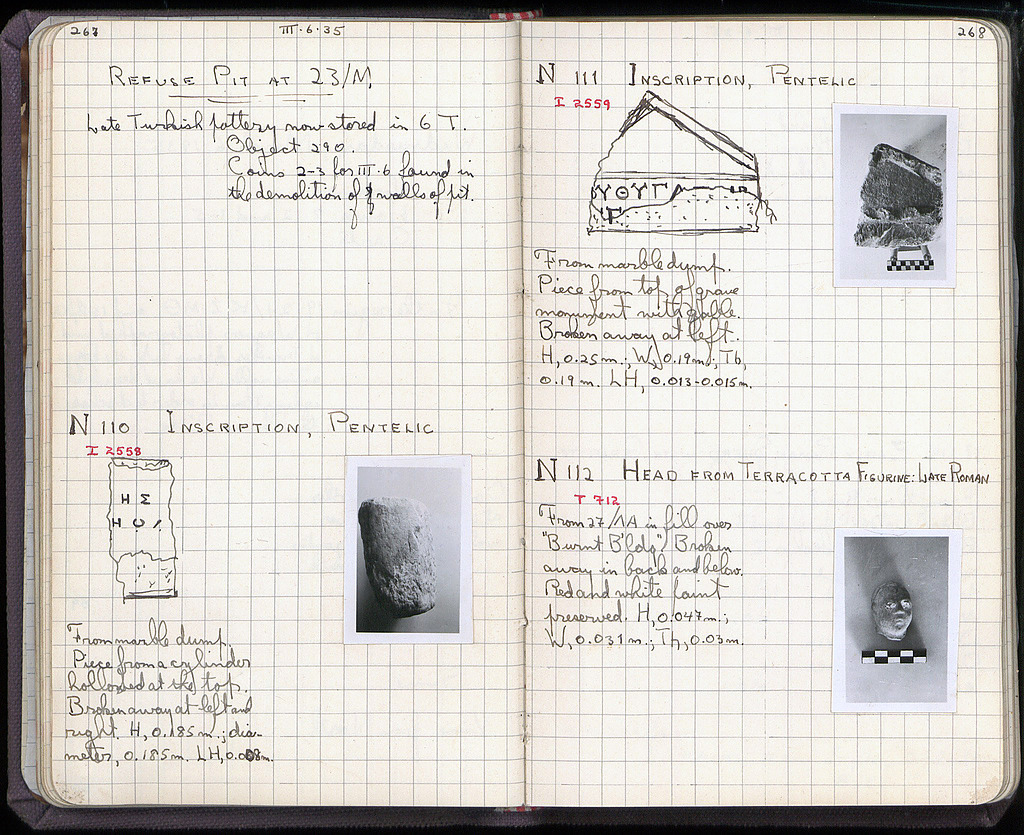 267
III·6·35
REFUSE PIT AT 23/M
Late Turkish pottery now stored in 6 T.
Object 290.
Coins 2-3 for III·6 found in
the demolition of walls of pit.
N 110 INSCRIPTION, PENTELIC
I 2558
ΗΣ
From marble dump.
Piece from a cylinder
hollowed at the top.
Broken away at left and
right. H, 0.185 m.; dia-
meter, 0.185 m. LH, 0.008m.
268
N 111 INSCRIPTION, PENTELIC
I 2559
ΥΘΥΓ
Γ
From marble dump.
Piece from top of grave
monument with gable.
Broken away at left.
H, 0.25 m.; W, 0.19 m.; Th,
0.19 m. LH, 0.013-0.015m.
N 112 HEAD FROM TERRACOTTA FIGURINE: LATE ROMAN
T 712
From 27/ΛΑ in fill over
"Burnt B'ldg". Broken
away in back and below.
Red and white paint
preserved. H, 0.047 m.;
W, 0.031 m.; Th, 0.03 m.